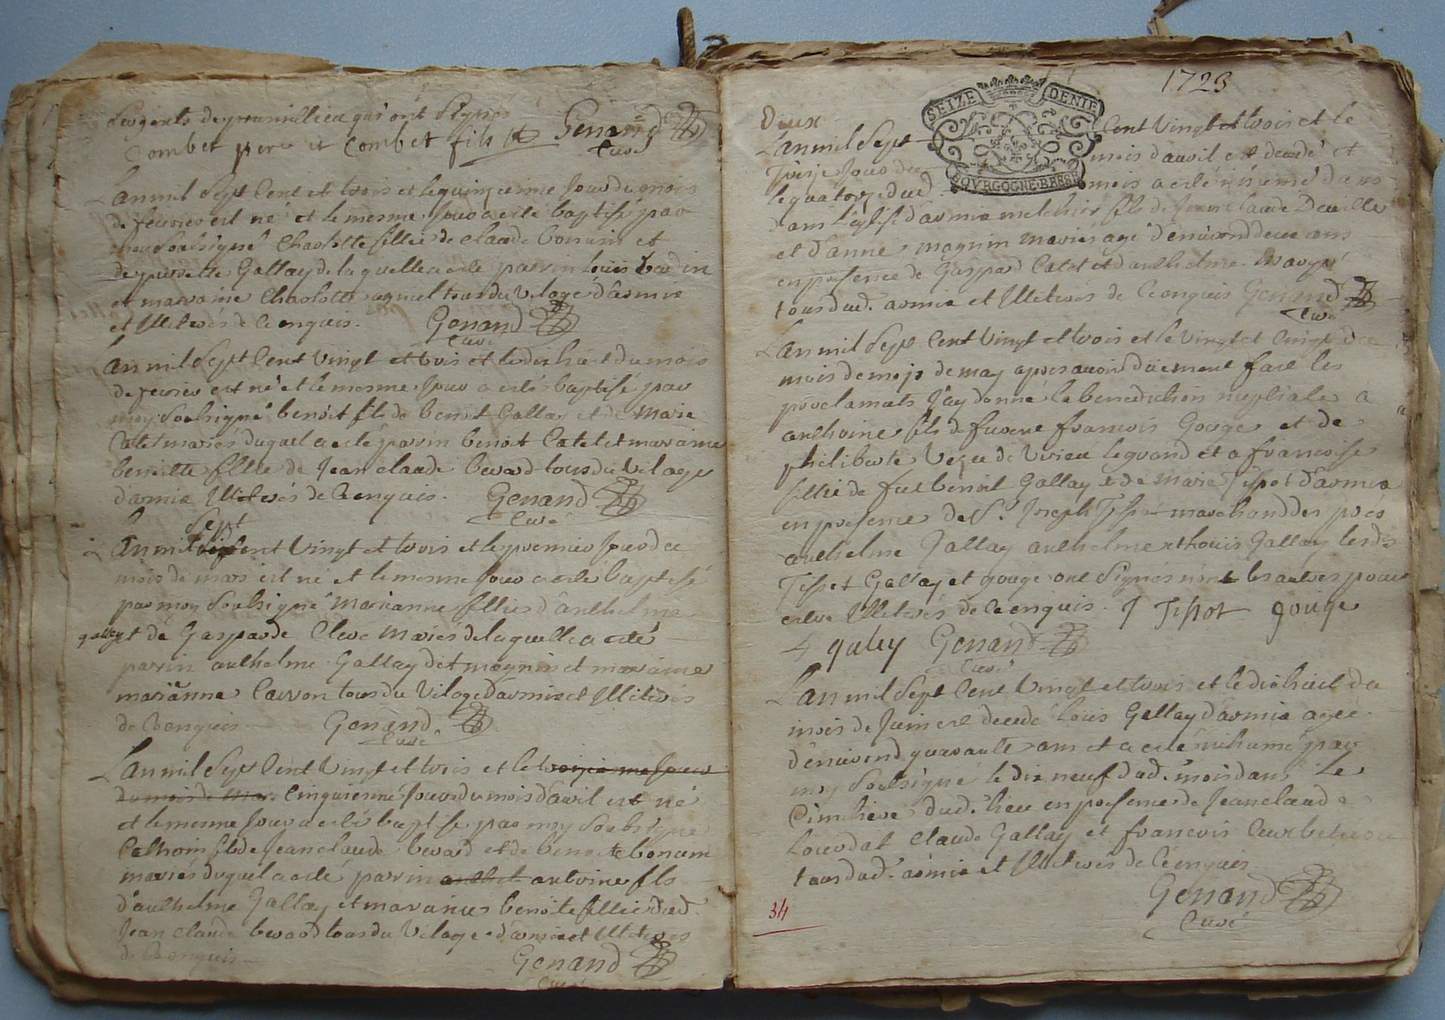 qui ont signés
Combet pere et Combet fils Genand
Curé
L'an mil sept cent et trois et le quinzieme jour du mois
de fevrier est né et le mesme jour a esté baptisé par
soubsigné Charlotte fillie de claude bonum et
de Gallay de laquelle a esté parrin Louis
et maraine Charlotte tous du vilage d'armix
et Illiterés de ce enquis. Genand
Curé
L'an mil sept cent vingt et trois et le dix huict du mois
de fevrier est né et le mesme jour a esté baptisé par
moy soubsigné benoit fils de benoit Gallay et de Marie
Catel mariés duquel a esté parrin benoit Catel et maraine
benoitte fillie de Jean claude bevard tous du vilage
d'armix Illiterés de ce enquis. Genand
Curé
sept
L'an mil cent vingt et trois et le premier jour du
mois de mars est né et le mesme jour a esté baptisé
par moy soubsigné Marianne fillie d'anthelme
gallay et de Gasparde Cleve mariés de laquelle a esté
parrin anthelme Gallay dit magnin et maraine
marianne Carron tous du vilage d'armix et Illiterés
de ce enquis Genand
Curé
L'an mil sept cent vingt et trois et le
du mois de mars cinquiesme jour du mois d'avril est né
et le mesme jour a esté baptisé par moy soubsigné
fils de Jean claude bevard et de benoite bonum
mariés duquel a esté parrin antoine fils
d'anthelme Gallay et maraine benoite fillie dud.
Jean claude bevard tous du vilage d'armix et Illiterés
de ce enquis Genand
Curé
1723
SEIZE DENIE
BOURGOGNE BRESSE
Deux
L'an mil sept cent vingt et trois et le
jour du mois d'avril est decedé et
le quatorze dud. mois a esté inhumé dans
dans l'eglise d'armix melchior fils de Jean claude
et d'anne magnin mariés agé d'environ deux ans
en presence de Gaspard Catel et d'anthelme
tous dud. armix et Illiterés de ce enquis Genand
Curé
L'an mil sept cent vingt et trois et le vingt et cinq du
mois de may apres avoir düement fait les
proclamats j'ay donné la benediction nuptiale a
anthoine fils de fut francois Gouge et de
philiberte de Virieu le grand et a francoise
fillie de fut benoit Gallay et de Marie Tissot d'armix
en presence de Sr. Joseph Tissot marchand
anthelme Gallay anthelme et Louis Gallay lesd.
Tissot Gallay et gouge ont signés non les autres pour
estre Illiterés de ce enquis. J Tissot gouge
galey Genand
Curé
L'an mil sept cent vingt et trois et le dix huict du
mois de Juin est decedé Louis Gallay d'armix agé
d'environ quarante ans et a esté inhumé par
moy soubsigné le dix neuf dud. mois dans le
Cimitiere dud. lieu en presence de Jean claude
Claude Gallay et francois
tous dud. armix et Illiterés de ce enquis
Genand
Curé
34